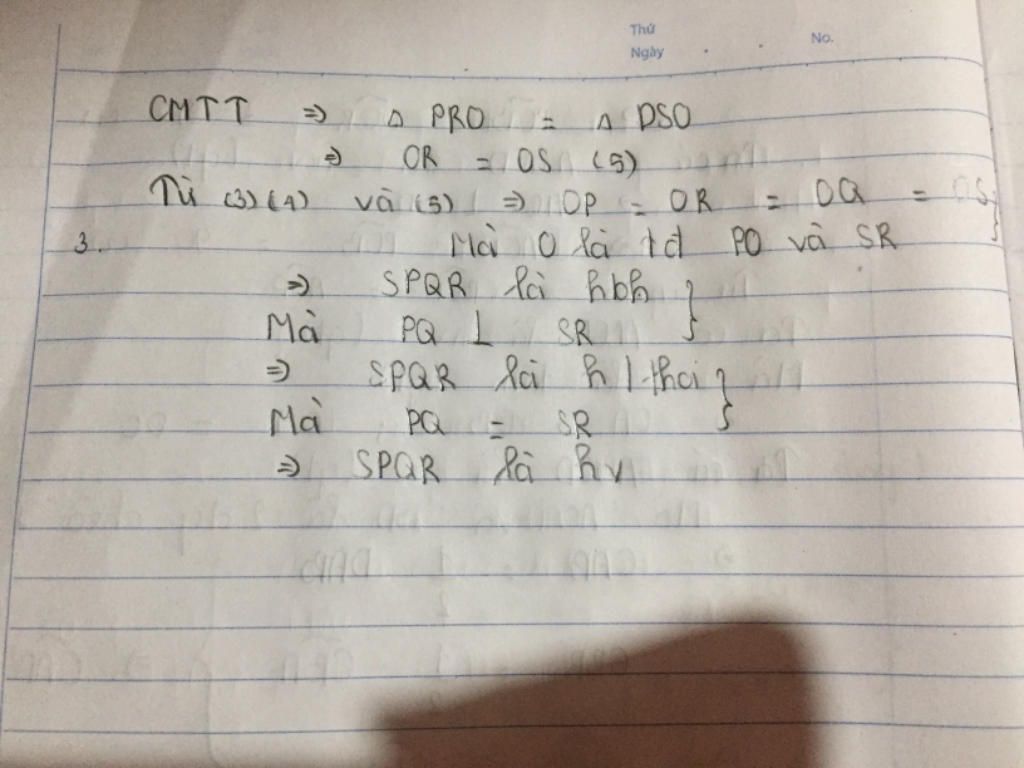 Thứ
Ngày
No.
CMTT ⇒ △ PRO = △ DSO
⇒ OR = OS (5)
Từ (3) (4) và (5) ⇒ OP = OR = OQ = OS
3. Mà O là tđ PO và SR
⇒ SPQR là hbh }
Mà PQ ⊥ SR
⇒ SPQR là h thoi }
Mà PQ = SR
⇒ SPQR là hv